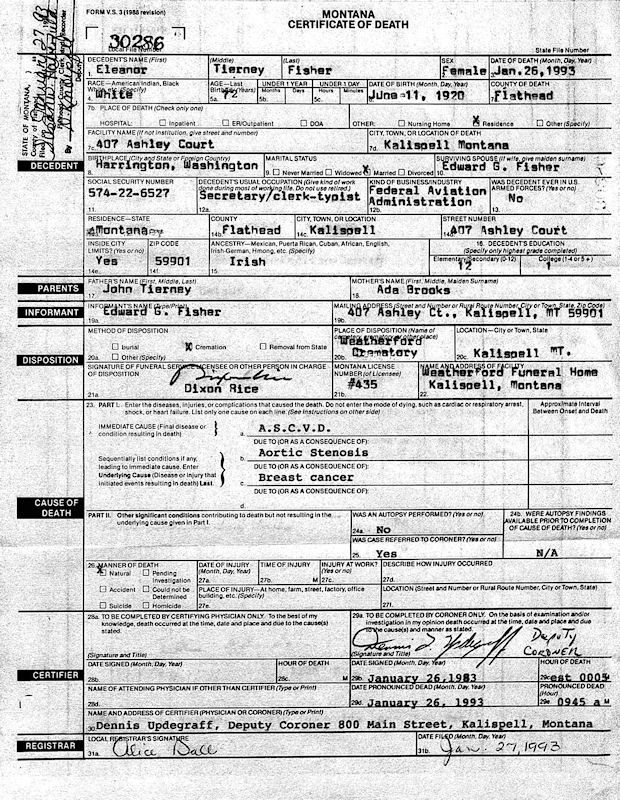 FORM V.S. 3 (1988 revision)
MONTANA
CERTIFICATE OF DEATH
30286
Local File Number
State File Number
STATE OF MONTANA,
DECEDENT'S NAME (First) (Middle) (Last) SEX DATE OF DEATH (Month, Day, Year)
1. Eleanor Tierney Fisher 2. Female 3. Jan. 26, 1993
RACE—American Indian, Black AGE—Last UNDER 1 YEAR UNDER 1 DAY DATE OF BIRTH (Month, Day, Year) COUNTY OF DEATH
4. White 72 Mos. Days Hours Minutes June 11, 1920 Flathead
7b. PLACE OF DEATH (Check only one)
HOSPITAL: Inpatient ER/Outpatient DOA OTHER: Nursing Home X Residence Other (Specify)
FACILITY NAME (If not institution, give street and number) CITY, TOWN, OR LOCATION OF DEATH
7c. 407 Ashley Court 7d. Kalispell Montana
DECEDENT
BIRTHPLACE (City and State or Foreign Country) MARITAL STATUS SURVIVING SPOUSE (If wife, give maiden surname)
8. Harrington, Washington 9. Never Married Widowed X Married Divorced 10. Edward G. Fisher
SOCIAL SECURITY NUMBER DECEDENT'S USUAL OCCUPATION (Give kind of work done during most of working life. Do not use retired.) KIND OF BUSINESS/INDUSTRY WAS DECEDENT EVER IN U.S. ARMED FORCES? (Yes or no)
574-22-6527 Secretary/clerk-typist Federal Aviation Administration No
11. 12a. 12b. 13.
RESIDENCE—STATE COUNTY CITY, TOWN, OR LOCATION STREET NUMBER
Montana 14b. Flathead 14c. Kalispell 14d. 407 Ashley Court
INSIDE CITY LIMITS? (Yes or no) ZIP CODE ANCESTRY—Mexican, Puerto Rican, Cuban, African, English, Irish-German, Hmong, etc. (Specify) 16. DECEDENT'S EDUCATION
(Specify only highest grade completed)
Elementary/Secondary (0-12) College (1-4 or 5+)
14e. Yes 14f. 59901 15. Irish 12 1
PARENTS
FATHER'S NAME (First, Middle, Last) MOTHER'S NAME (First, Middle, Maiden Surname)
17. John Tierney 18. Ada Brooks
INFORMANT
INFORMANT'S NAME (Type/Print) MAILING ADDRESS (Street and Number or Rural Route Number, City or Town, State, Zip Code)
19a. Edward G. Fisher 19b. 407 Ashley Ct., Kalispell, MT 59901
DISPOSITION
METHOD OF DISPOSITION PLACE OF DISPOSITION (Name of cemetery, crematory, or other place) LOCATION—City or Town, State
Burial X Cremation Removal from State Weatherford
20a. Other (Specify) 20b. Crematory 20c. Kalispell MT.
SIGNATURE OF FUNERAL SERVICE LICENSEE OR OTHER PERSON IN CHARGE OF DISPOSITION MONTANA LICENSE NUMBER (of Licensee) NAME AND ADDRESS OF FACILITY
21a. Dixon Rice 21b. #435 22. Weatherford Funeral Home
Kalispell, Montana
23. PART I. Enter the diseases, injuries, or complications that caused the death. Do not enter the mode of dying, such as cardiac or respiratory arrest, shock, or heart failure. List only one cause on each line. (See Instructions on other side) Approximate Interval Between Onset and Death
IMMEDIATE CAUSE (Final disease or condition resulting in death) a. A.S.C.V.D.
DUE TO (OR AS A CONSEQUENCE OF):
Sequentially list conditions if any, leading to immediate cause. Enter Underlying Cause (Disease or Injury that initiated events resulting in death) Last.
b. Aortic Stenosis
DUE TO (OR AS A CONSEQUENCE OF):
c. Breast cancer
DUE TO (OR AS A CONSEQUENCE OF):
d.
CAUSE OF DEATH
PART II. Other significant conditions contributing to death but not resulting in the underlying cause given in Part I.
WAS AN AUTOPSY PERFORMED? (Yes or no) 24b. WERE AUTOPSY FINDINGS AVAILABLE PRIOR TO COMPLETION OF CAUSE OF DEATH? (Yes or no)
24a. No
WAS CASE REFERRED TO CORONER? (Yes or no)
25. Yes N/A
26. MANNER OF DEATH DATE OF INJURY (Month, Day, Year) TIME OF INJURY INJURY AT WORK? (Yes or no) DESCRIBE HOW INJURY OCCURRED
X Natural Pending Investigation 27a. 27b. M 27c. 27d.
Accident Could not be Determined PLACE OF INJURY—At home, farm, street, factory, office building, etc. (Specify) LOCATION (Street and Number or Rural Route Number, City or Town, State)
Suicide Homicide 27e. 27f.
CERTIFIER
28a. TO BE COMPLETED BY CERTIFYING PHYSICIAN ONLY. To the best of my knowledge, death occurred at the time, date and place and due to the cause(s) stated.
(Signature and Title)
29a. TO BE COMPLETED BY CORONER ONLY. On the basis of examination and/or investigation in my opinion death occurred at the time, date and place and due to the cause(s) and manner as stated.
Dennis J Updegraff Deputy Coroner
(Signature and Title)
DATE SIGNED (Month, Day, Year) HOUR OF DEATH DATE SIGNED (Month, Day, Year) HOUR OF DEATH
28b. 28c. M 29b. January 26, 1983 29c. est 0005
NAME OF ATTENDING PHYSICIAN IF OTHER THAN CERTIFIER (Type or Print) DATE PRONOUNCED DEAD (Month, Day, Year) PRONOUNCED DEAD (Hour)
28d. 29d. January 26, 1993 29e. 0945 a M
NAME AND ADDRESS OF CERTIFIER (PHYSICIAN OR CORONER) (Type or Print)
30. Dennis Updegraff, Deputy Coroner 800 Main Street, Kalispell, Montana
REGISTRAR
LOCAL REGISTRAR'S SIGNATURE DATE FILED (Month, Day, Year)
31a. Alice Dall 31b. Jan. 27, 1993